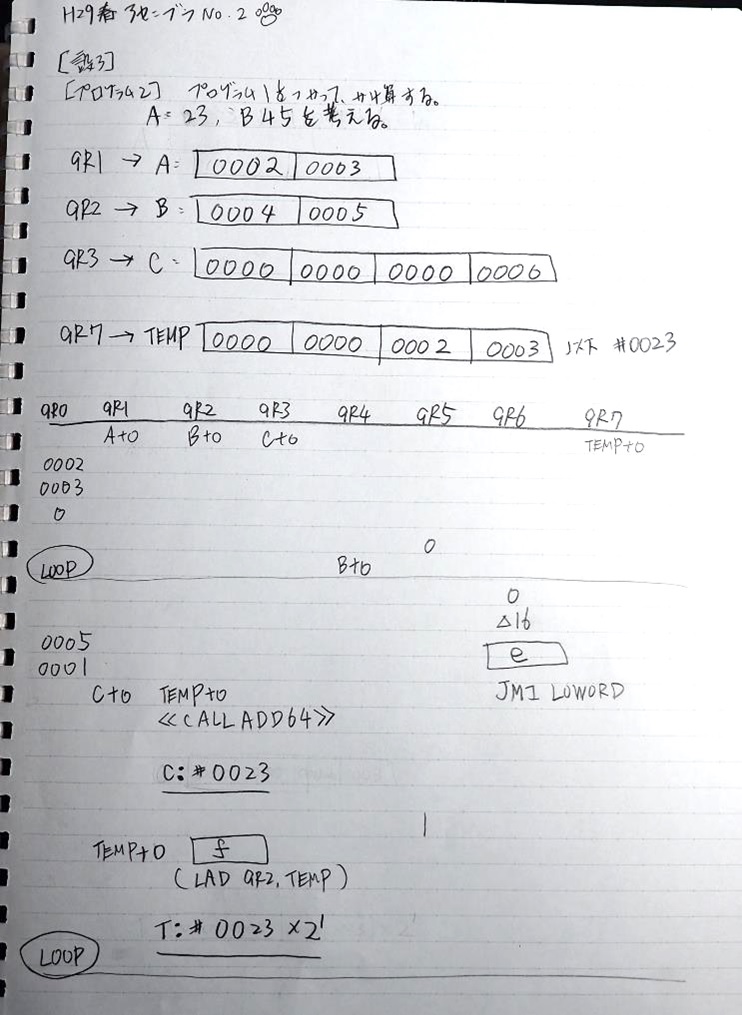 H29春 アセンブラ No.2
[設3]
[プログラム2] プログラム1をつかって、かけ算する。
A=23, B 45を考える。
GR1 → A= 0002 0003
GR2 → B= 0004 0005
GR3 → C= 0000 0000 0000 0000
GR7 → TEMP 0000 0000 0002 0003 以下 #0023
GR0 GR1 GR2 GR3 GR4 GR5 GR6 GR7
A+0 B+0 C+0 TEMP+0
0002
0003
0
0
LOOP B+0
0
△16
0005 e
0001
C+0 TEMP+0 JMI LOWORD
≪CALL ADD64≫
C:#0023
1
TEMP+0 f
(LAD GR2,TEMP)
T:# 0023 ×2¹
LOOP